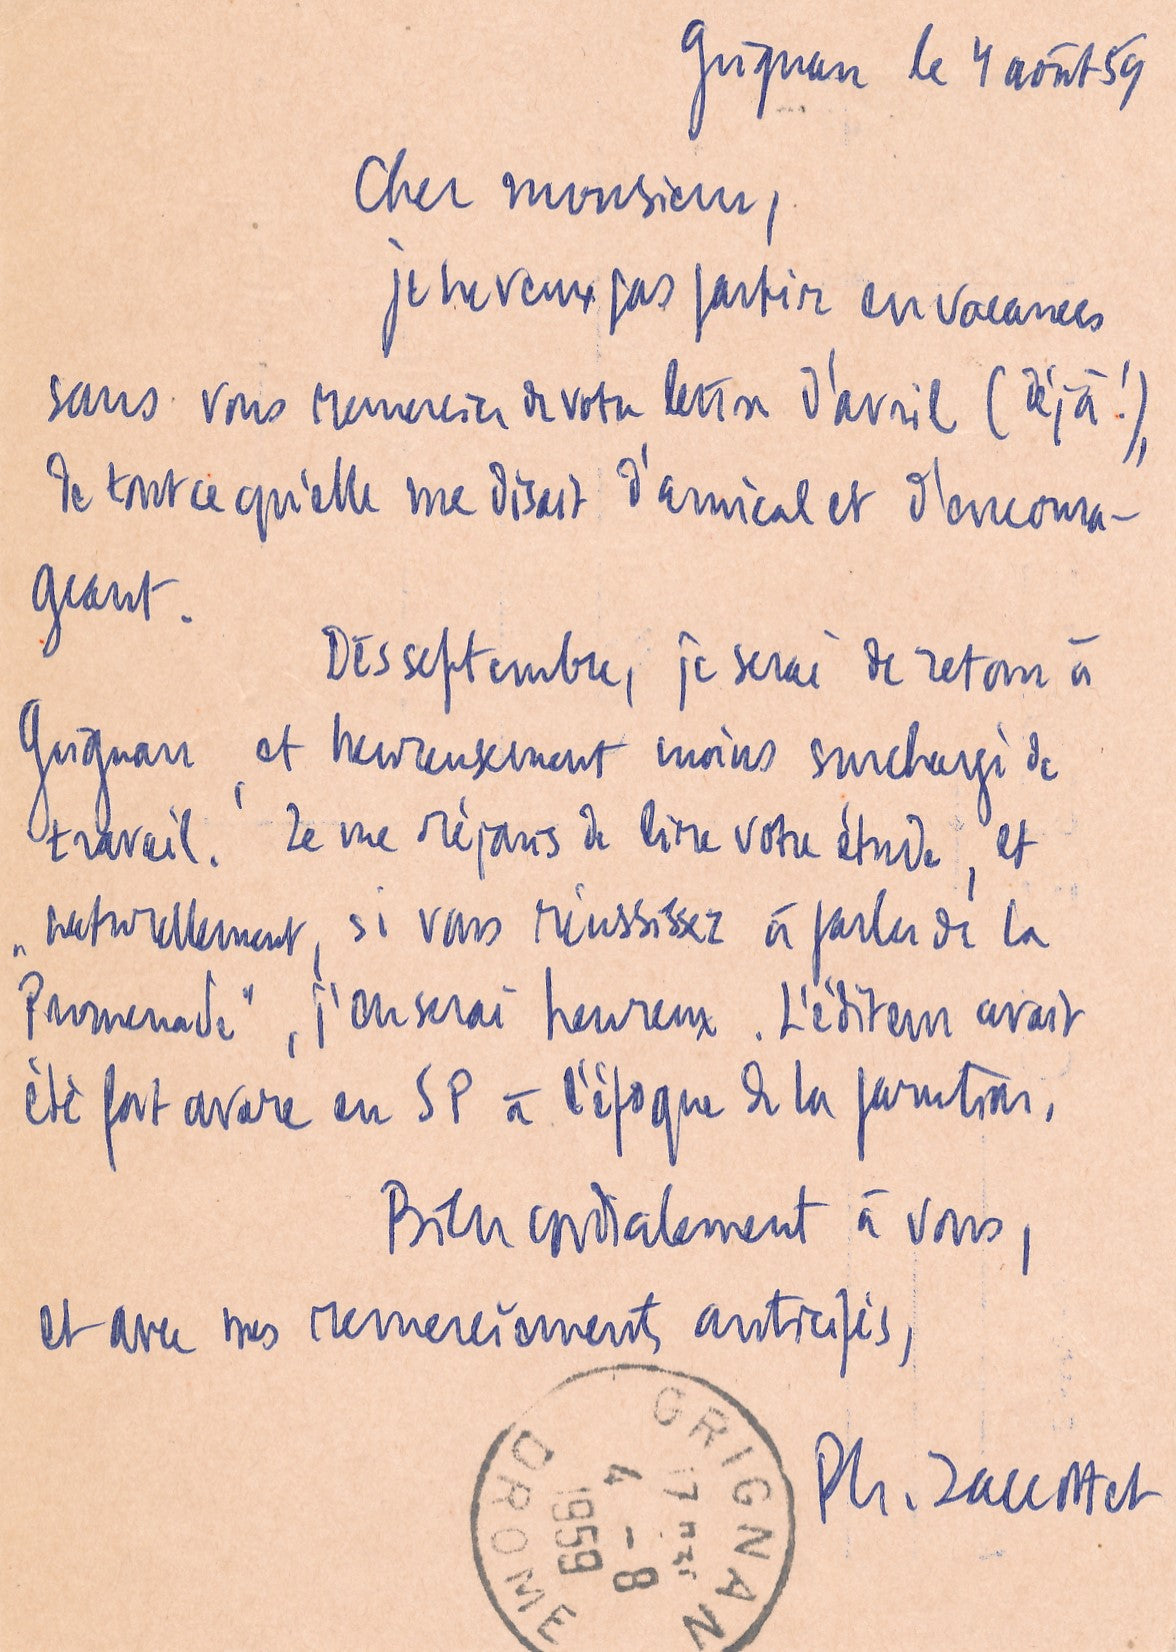 Grignan le 4 août 59
Cher monsieur,
je ne veux pas partir en vacances
sans vous remercier de votre lettre d'avril (déjà!),
de tout ce qu'elle me disait d'amical et d'encoura-
geant.
Dès septembre, je serai de retour à
Grignan, et heureusement moins surchargé de
travail. Je me réjouis de lire votre étude, et
naturellement, si vous réussissez à parler de "la
Promenade", j'en serai heureux. L'éditeur avait
été fort avare en SP à l'époque de la parution.
Bien cordialement à vous,
et avec mes remerciements anticipés,
Ph. Jaccottet
GRIGNAN
17H
4 - 8
1959
DROME